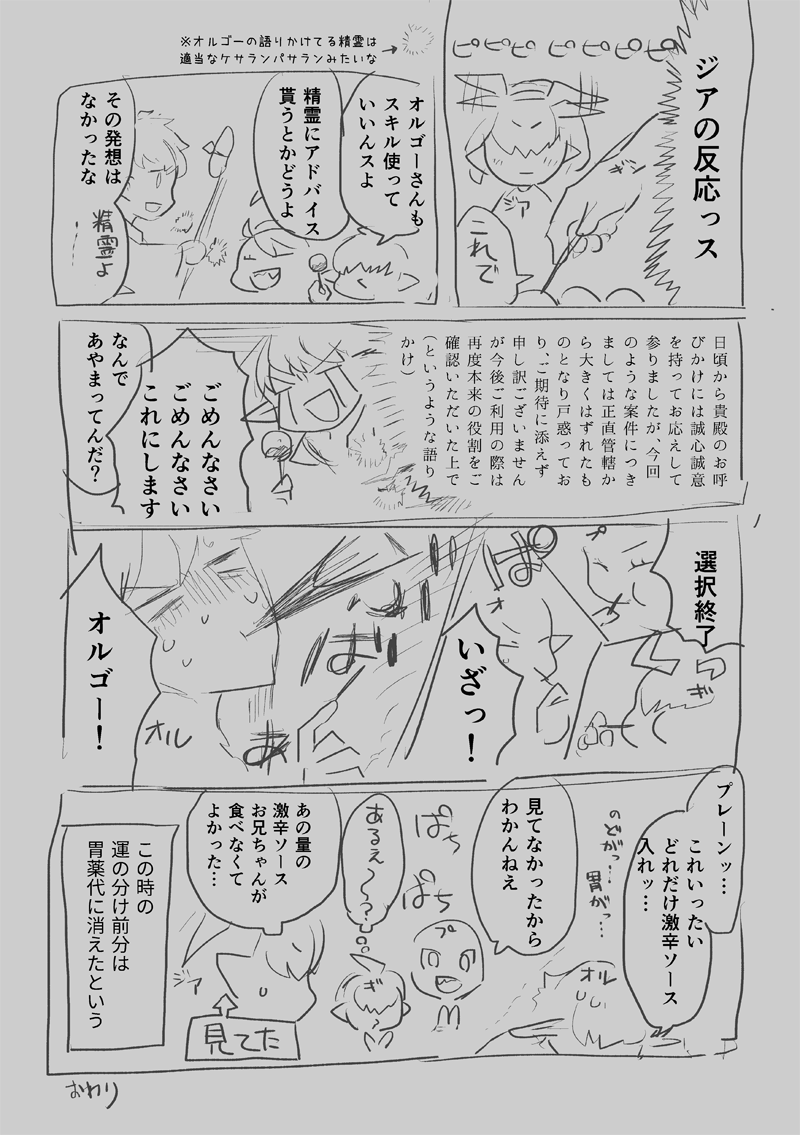 ピピピピピピピピ
ジアの反応っス
ギン
ジア
これで
※オルゴーの語りかけてる精霊は
適当なケサランパサランみたいな
オルゴーさんも
スキル使って
いいんスよ
精霊にアドバイス
貰うとかどうよ
その発想は
なかったな
精霊よ
……
日頃から貴殿のお呼
びかけには誠心誠意
を持ってお応えして
参りましたが、今回
のような案件につき
ましては正直管轄か
ら大きくはずれたも
のとなり戸惑ってお
り、ご期待に添えず
申し訳ございません
が今後ご利用の際は
再度本来の役割をご
確認いただいた上で
（というような語り
かけ）
ごめんなさい
ごめんなさい
これにします
なんで
あやまってんだ？
選択終了
プ
ギ
ぱ
オ
いざっ！
ばあ
オルゴー！
オル
プレーンッ…
これいったい
どれだけ激辛ソース
入れッ…
のどがっ…
胃がっ…
オル
見てなかったから
わかんねえ
ぱち
ぱち
プ
あるぇ～？
ギ
あの量の
激辛ソース
お兄ちゃんが
食べなくて
よかった…
ジア
見てた
この時の
運の分け前分は
胃薬代に消えたという
おわり